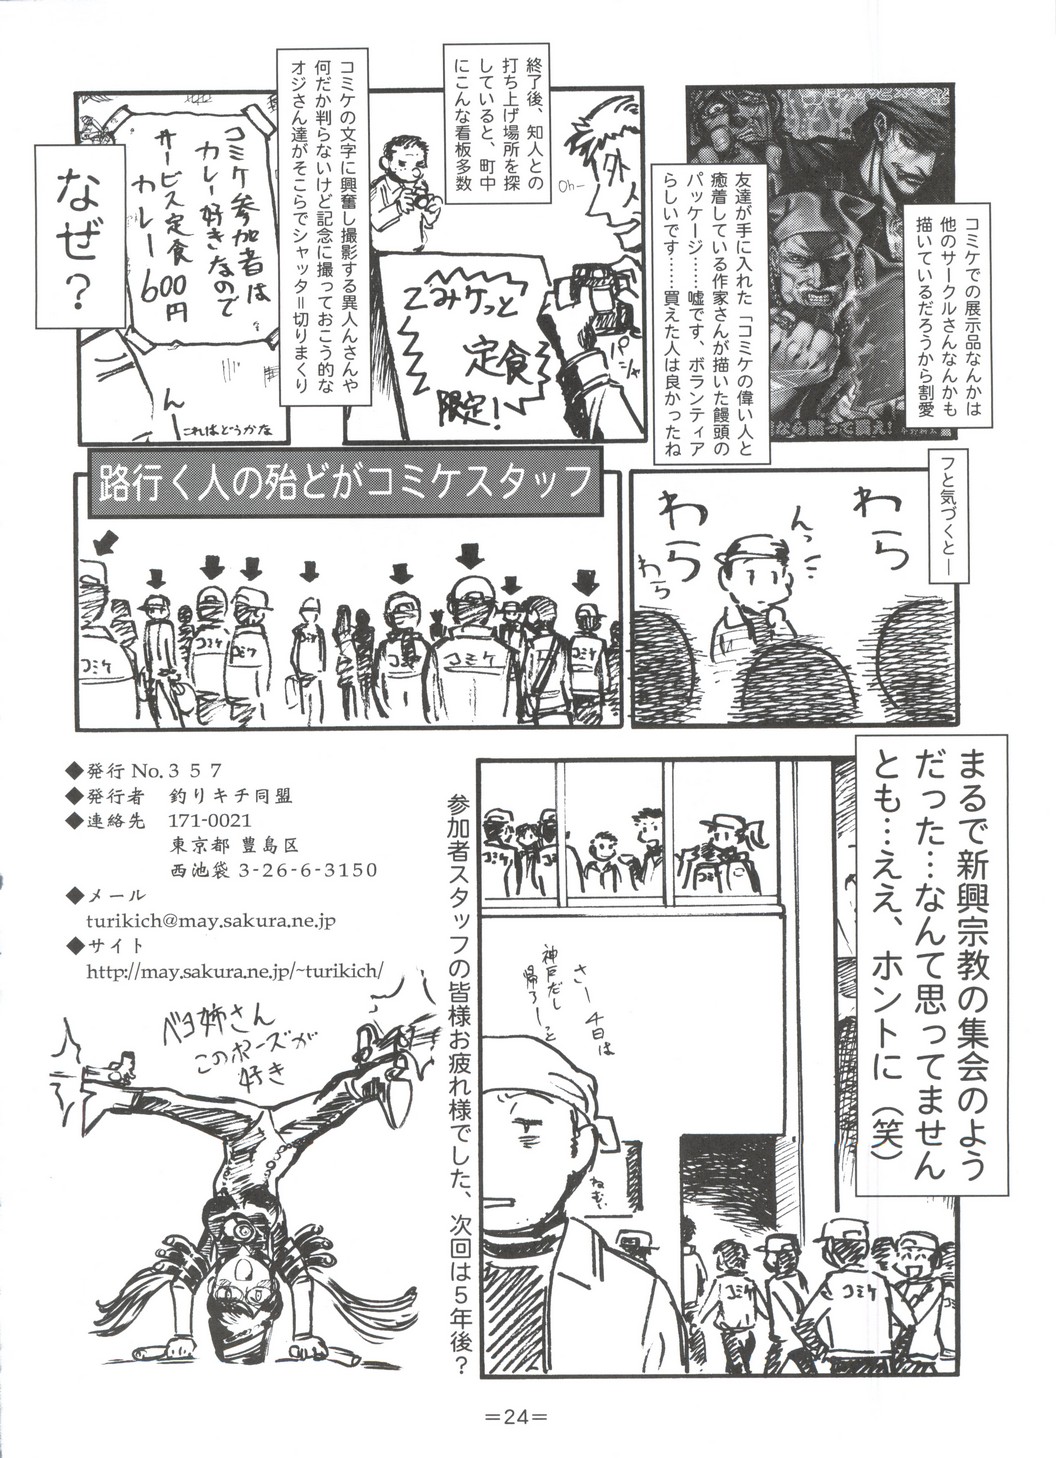 コミケでの展示品なんかは
他のサークルさんなんかも
描いているだろうから割愛
友達が手に入れた「コミケの偉い人と
癒着している作家さんが描いた饅頭の
パッケージ……嘘です、ボランティア
らしいです……買えた人は良かったね
なら黙って買え!
終了後、知人との
打ち上げ場所を探
していると、町中
にこんな看板多数
外人
Oh-
パシャ
こみケっと
定食
限定!
コミケの文字に興奮し撮影する異人んさんや
何だか判らないけど記念に撮っておこう的な
オジさん達がそこらでシャッター切りまくり
コミケ参加者は
カレー好きなので
サービス定食
カレー600円
なぜ?
んー
これはどうかな
フと気づくと―
わら
わら
わら
んっ
路行く人の殆どがコミケスタッフ
コミケ
コミケ
コミケ
コミケ
コミケ
コミケ
まるで新興宗教の集会のよう
だった…なんて思ってません
とも…ええ、ホントに(笑)
コミケ
コミケ
さー4日は
神戸だし
帰ろーっと
ねむい
コミケ
コミケ
参加者スタッフの皆様お疲れ様でした、次回は5年後?
◆発行 No.357
◆発行者 釣りキチ同盟
◆連絡先 171-0021
東京都 豊島区
西池袋 3-26-6-3150
◆メール
turikich@may.sakura.ne.jp
◆サイト
http://may.sakura.ne.jp/~turikich/
ベヨ姉さん
このポーズが
好き
=24=